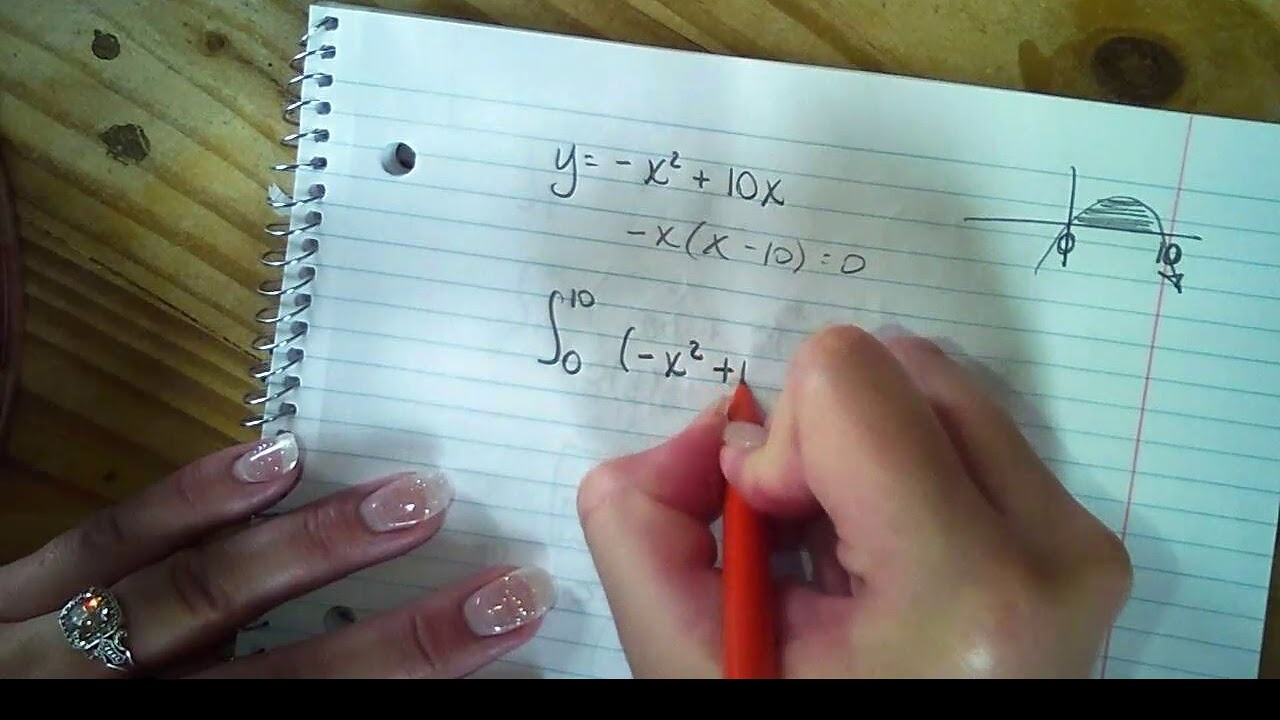 y = -x² + 10x
-x(x - 10) = 0
∫₀¹⁰ (-x² + 1
0 10